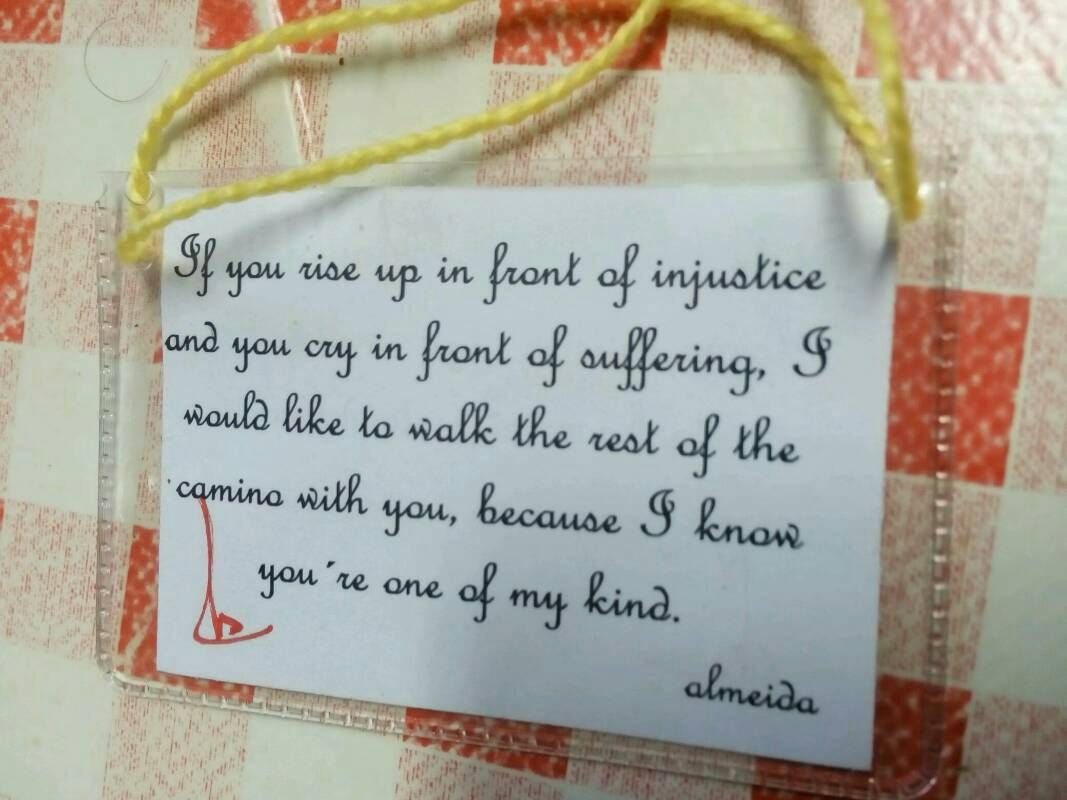 If you rise up in front of injustice
and you cry in front of suffering, I
would like to walk the rest of the
camino with you, because I know
you´re one of my kind.
almeida